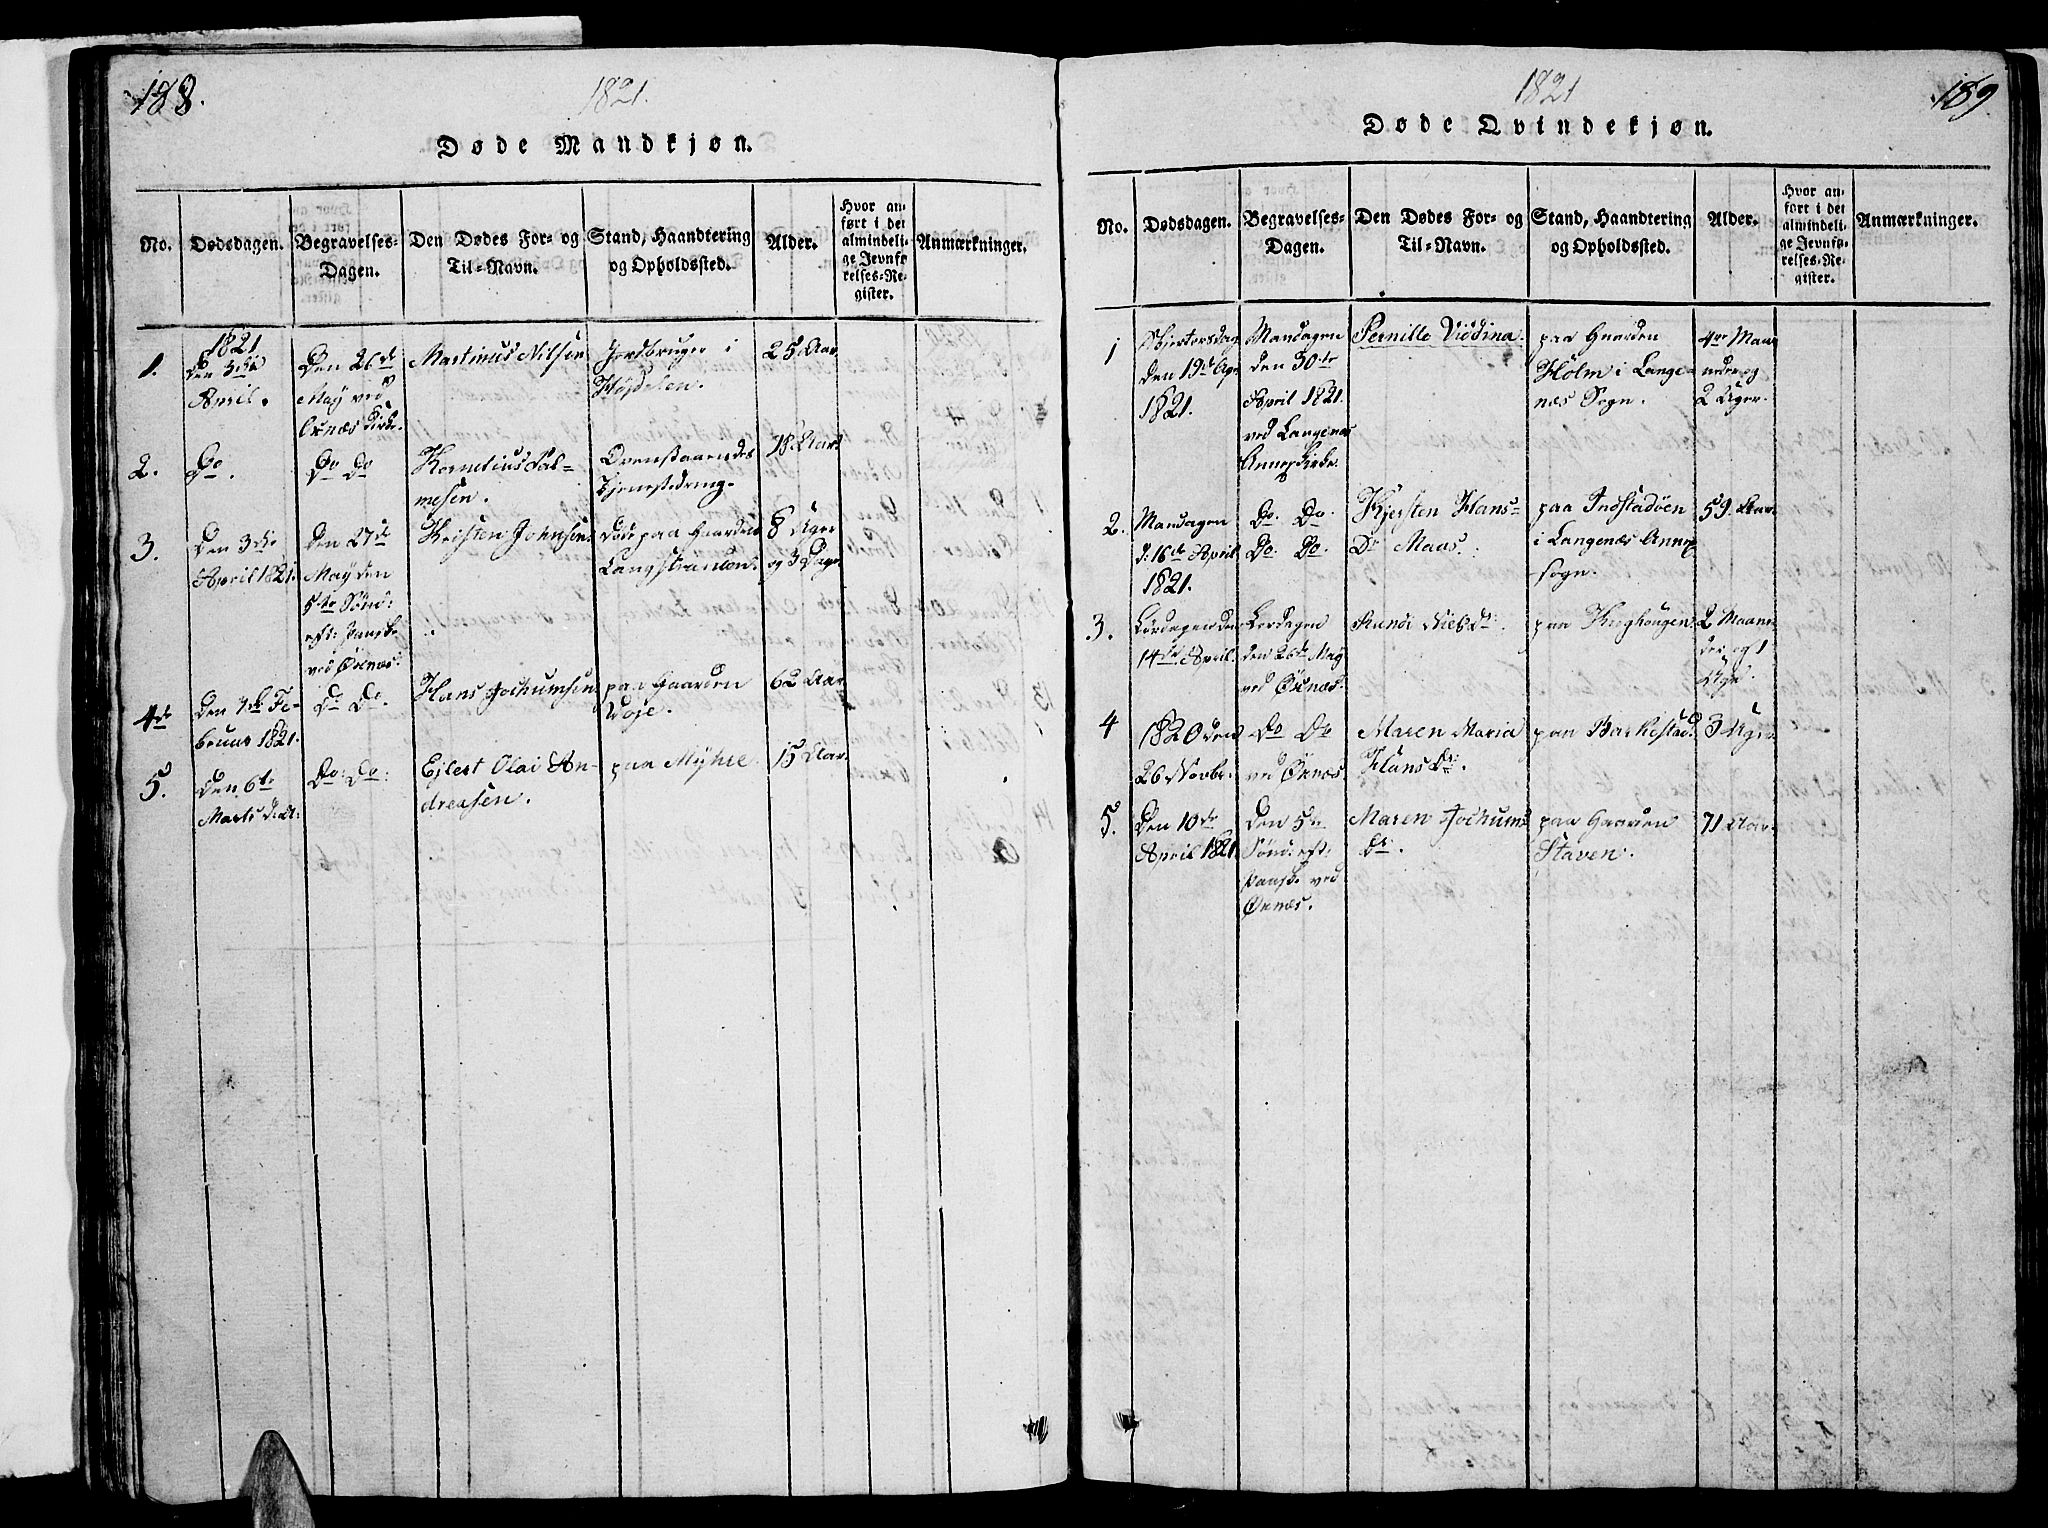 188.
1821.
Døde Mandkjøn.
No.
Dødsdagen.
Begravelses-
Dagen.
Den Dødes For- og
Til-Navn.
Stand, Haandtering
og Opholdssted.
Alder.
Hvor an-
ført i det
almindeli-
ge Jevnfø
relses-Re-
gister.
Anmærkninger.
1.
1821
den 3die
April.
Den 26de
May ved
Øxnæs Kirke.
Martinus Nilsen
Jordbruger i
25 Aar
2.
Do.
Do Do
Kornelius Sal-
mesen.
Tjenestedreng.
18 Aar
3.
Den 3die
April 1821.
Den 27de
May den
5te Sønd:
eft: Paaske
ved Øxnæs.
Kristen Johnsen
Død paa Gaarden
8 Uger
og 3 Dage
4de
Den 7de Fe-
bruar 1821.
Do Do.
Hans Jochumsen
paa Gaarden
62 Aar
5.
Den 6te
Marts
Do: Do:
Ejlert Olai An-
dreasen.
paa Myhre
15 Aar.
189
1821
Døde Qvindekjøn.
No.
Dødsdagen.
Begravelses-
Dagen.
Den Dødes For- og
Til-Navn.
Stand, Haandtering
og Opholdssted.
Alder.
Hvor an-
ført i det
almindeli-
ge Jevnfø-
relses-Re-
gister.
Anmærkninger.
1
Skjertorsdag
den 19de Apr.
1821.
Mandagen
den 30te
April 1821.
ved Langenæs
Annex Kirke.
Pernille
paa Gaarden
Holm i Lange-
næs Sogn.
4re Maa-
neder og
2 Uger.
2.
Mandagen
d: 16de April
1821.
Do. Do.
Do. Do.
Kjersten Hans-
Dr Maas.
paa Indstadøen
i Langenæs Annex
sogn.
59. Aar.
3.
Lørdagen den
14de April.
Lørdagen
den 26de May
ved Øxnæs.
Niels Dr:
paa
2 Maane
der og 1
Uge.
4
1820 den
26 Novbr.
Do Do
ved Øxnæs.
Maren Maria
Hans Dr.
paa Barkestad.
3 Uger
5.
Den 10de
April 1821
Den 5te
Sønd: eft:
Paaske ved
Øxnæs.
Maren Jochums
Dr.
paa Gaarden
Staven.
71 Aar